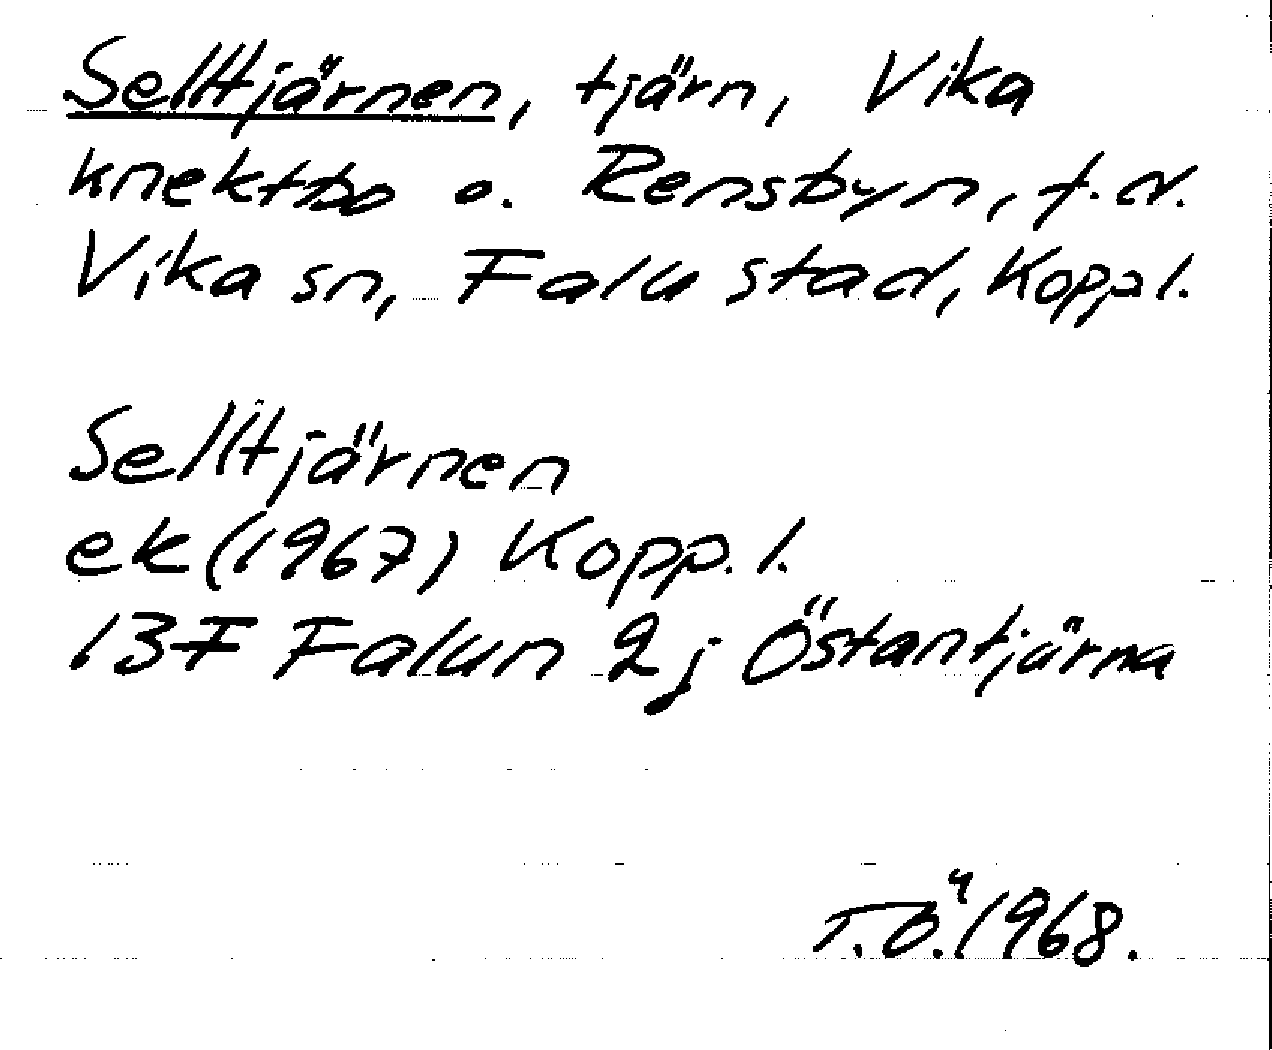 Selltjärnen, tjärn, Vika
knektbo o. Rensbyn, f.d.
Vika sn, Falu stad, Koppl.
Selltjärnen
ek (1967) Kopp.l.
13F Falun 2j Östantjärna
T.Ö. 1968.